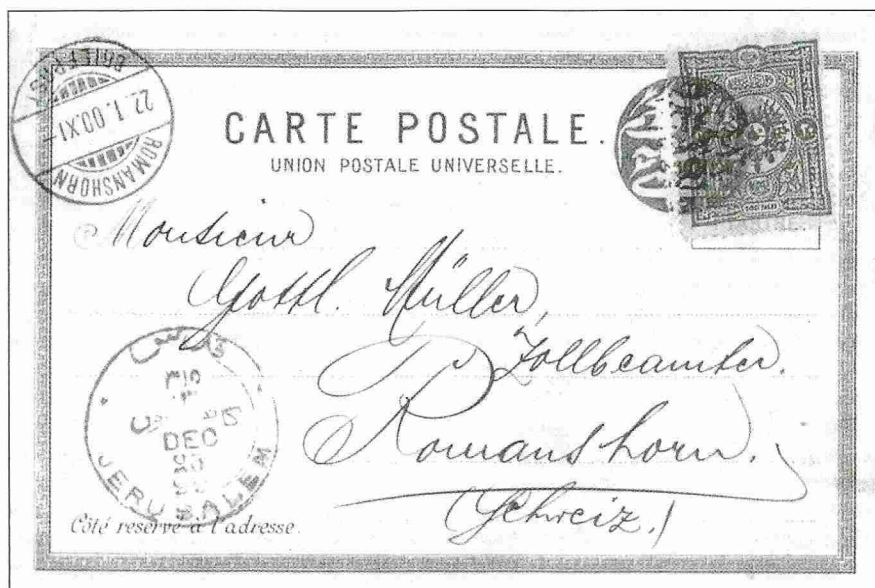 BRIEFTRÄGER
22.1.00.XI-
ROMANSHORN
CARTE POSTALE.
UNION POSTALE UNIVERSELLE.
Monsieur
Gottl. Müller,
Zollbeamter.
Romanshorn.
(Schweiz.)
قدس
DEC
JERUSALEM
Côté réservé à l'adresse.